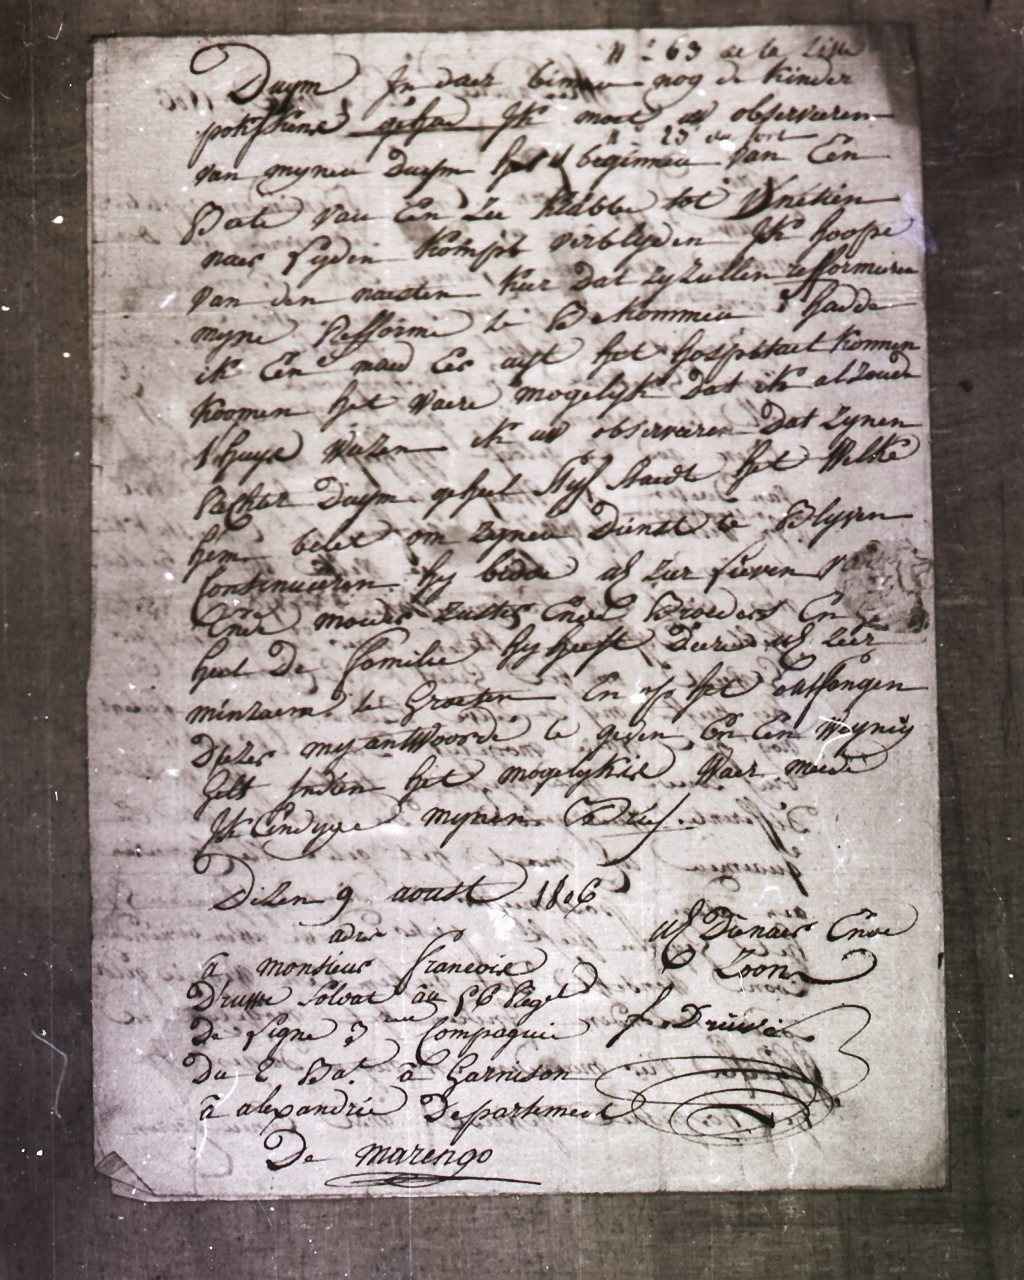 N° 63 de la Liste
Duym In daer binnen nog de Kinder
pokskens gehad Ik moet ul observeren
N° 23 du fort
van mynen Duym het beginnen van Een
Bate van En Zee Krabbe tot
naer Lyden Kompt verblyden Ik hoope
van den naesten Keer Dat Zy Zullen refformeren
myne Refforme te Bekommen hadde
ik Een maend Er uyt het hospitael konnen
koomen het waere mogelyk Dat ik al zoude
t huys Wezen ik ul observeren Dat Zynen
Rechter Duym geheel Styf Staedt het Welke
hem belet om Zynen Dienst te Blyven
Continueren hy bidde ul zeer Lieven
Ende moeder Zuster Ende Broeders En
heel De Familie hy heeft D'eer ul Zeer
minzaem te Groeten En op het Ontfangen
Dezer my antwoorde te geven En Een Weynig
Gelt Indien het mogelyk is Waer mede
Ik Eindyge mynen Brief.
Dezen 9 aoust 1806
adres
ul Dienaer Ende
Zoon
â monsieur Francois
Druwe Soldat au 56 Regt
De Ligne 3me Compagnie
F Druwe
Du 2 Bat. â Garnison
â alexandrie Departement
De marengo